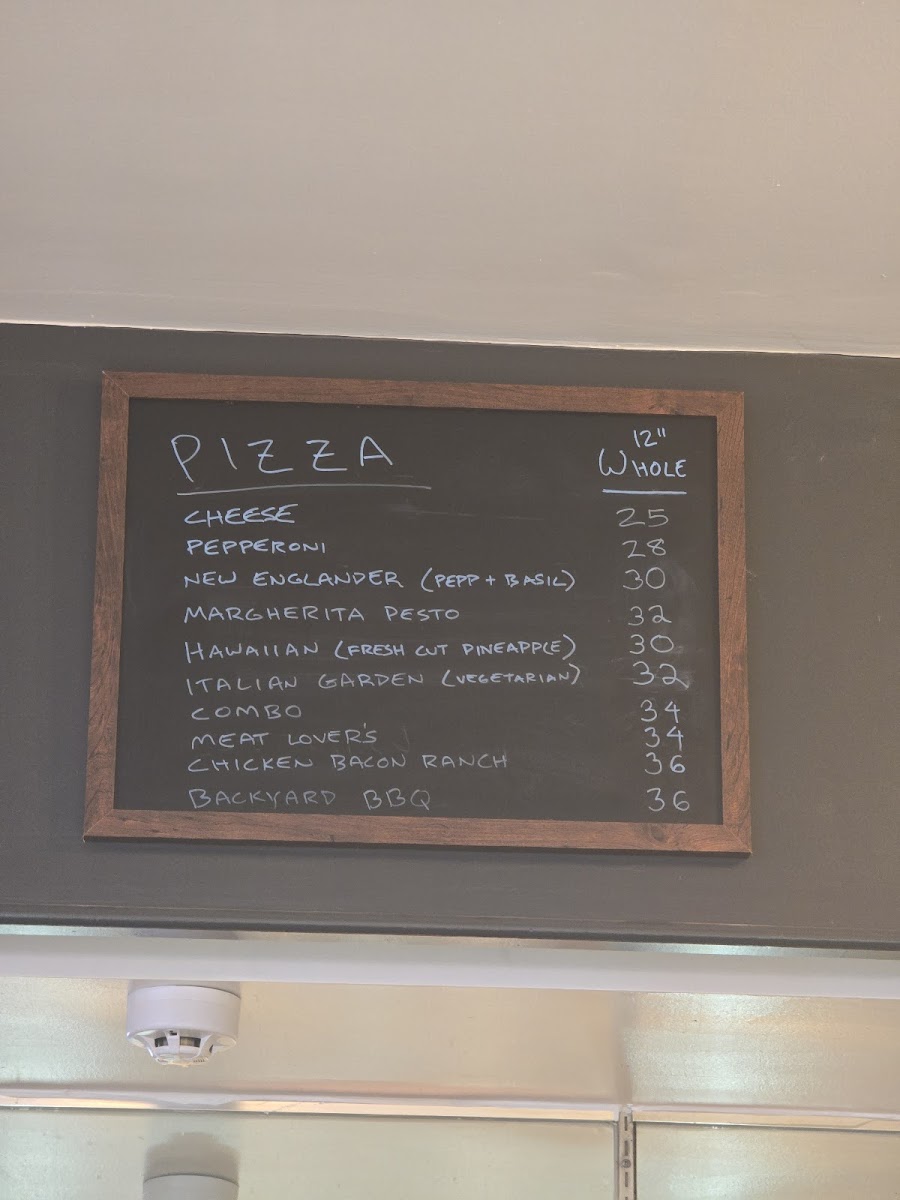 PIZZA 12" WHOLE
CHEESE 25
PEPPERONI 28
NEW ENGLANDER (PEPP + BASIL) 30
MARGHERITA PESTO 32
HAWAIIAN (FRESH CUT PINEAPPLE) 30
ITALIAN GARDEN (VEGETARIAN) 32
COMBO 34
MEAT LOVER'S 34
CHICKEN BACON RANCH 36
BACKYARD BBQ 36